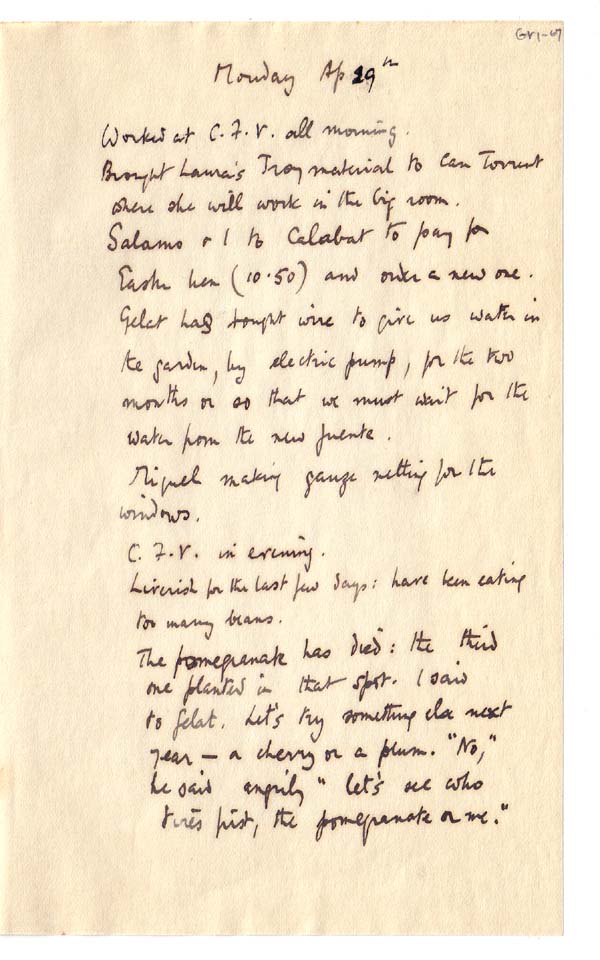 GRI-67
Monday Ap 29th
Worked at C.F.V. all morning.
Brought Laura's Troy material to Can Torrent
where she will work in the big room.
Salamo & I to Calabat to pay for
Easter hen (10.50) and order a new one.
Gelat has bought wire to give us water in
the garden, by electric pump, for the two
months or so that we must wait for the
water from the new fuente.
Miguel making gauze netting for the
windows.
C.F.V. in evening.
Liverish for the last few days: have been eating
too many beans.
The pomegranate has died: the third
one planted in that spot. I said
to Gelat. Let's try something else next
year – a cherry or a plum. "No,"
he said angrily "let's see who
tires first, the pomegranate or me."